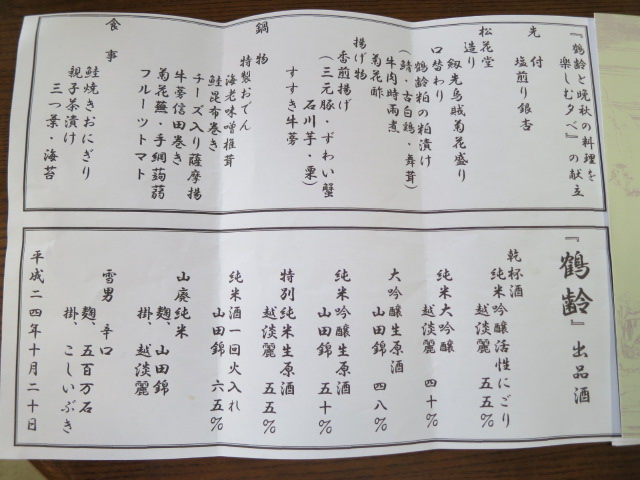 『鶴齢と晩秋の料理を
楽しむ夕べ』の献立
先付
塩煎り銀杏
松花堂
造り
剱先烏賊菊花盛り
口替わり
鶴齢粕の粕漬け
(鯖・古白鶏・舞茸)
牛肉時雨煮
菊花酢
揚げ物
香煎揚げ
(三元豚・ずわい蟹
石川芋・栗)
すすき牛蒡
鍋物
特製おでん
海老味噌椎茸
鮭昆布巻き
チーズ入り薩摩揚
牛蒡信田巻き
菊花蕪・手綱蒟蒻
フルーツトマト
食事
鮭焼きおにぎり
親子茶漬け
三つ葉・海苔
『鶴齢』出品酒
乾杯酒
純米吟醸活性にごり
越淡麗 五五%
純米大吟醸
越淡麗 四十%
大吟醸生原酒
山田錦 四八%
純米吟醸生原酒
山田錦 五十%
特別純米生原酒
越淡麗 五五%
純米酒一回火入れ
山田錦 六五%
山廃純米
麹、山田錦
掛、越淡麗
雪男 辛口
麹、五百万石
掛、こしいぶき
平成二四年十月二十日